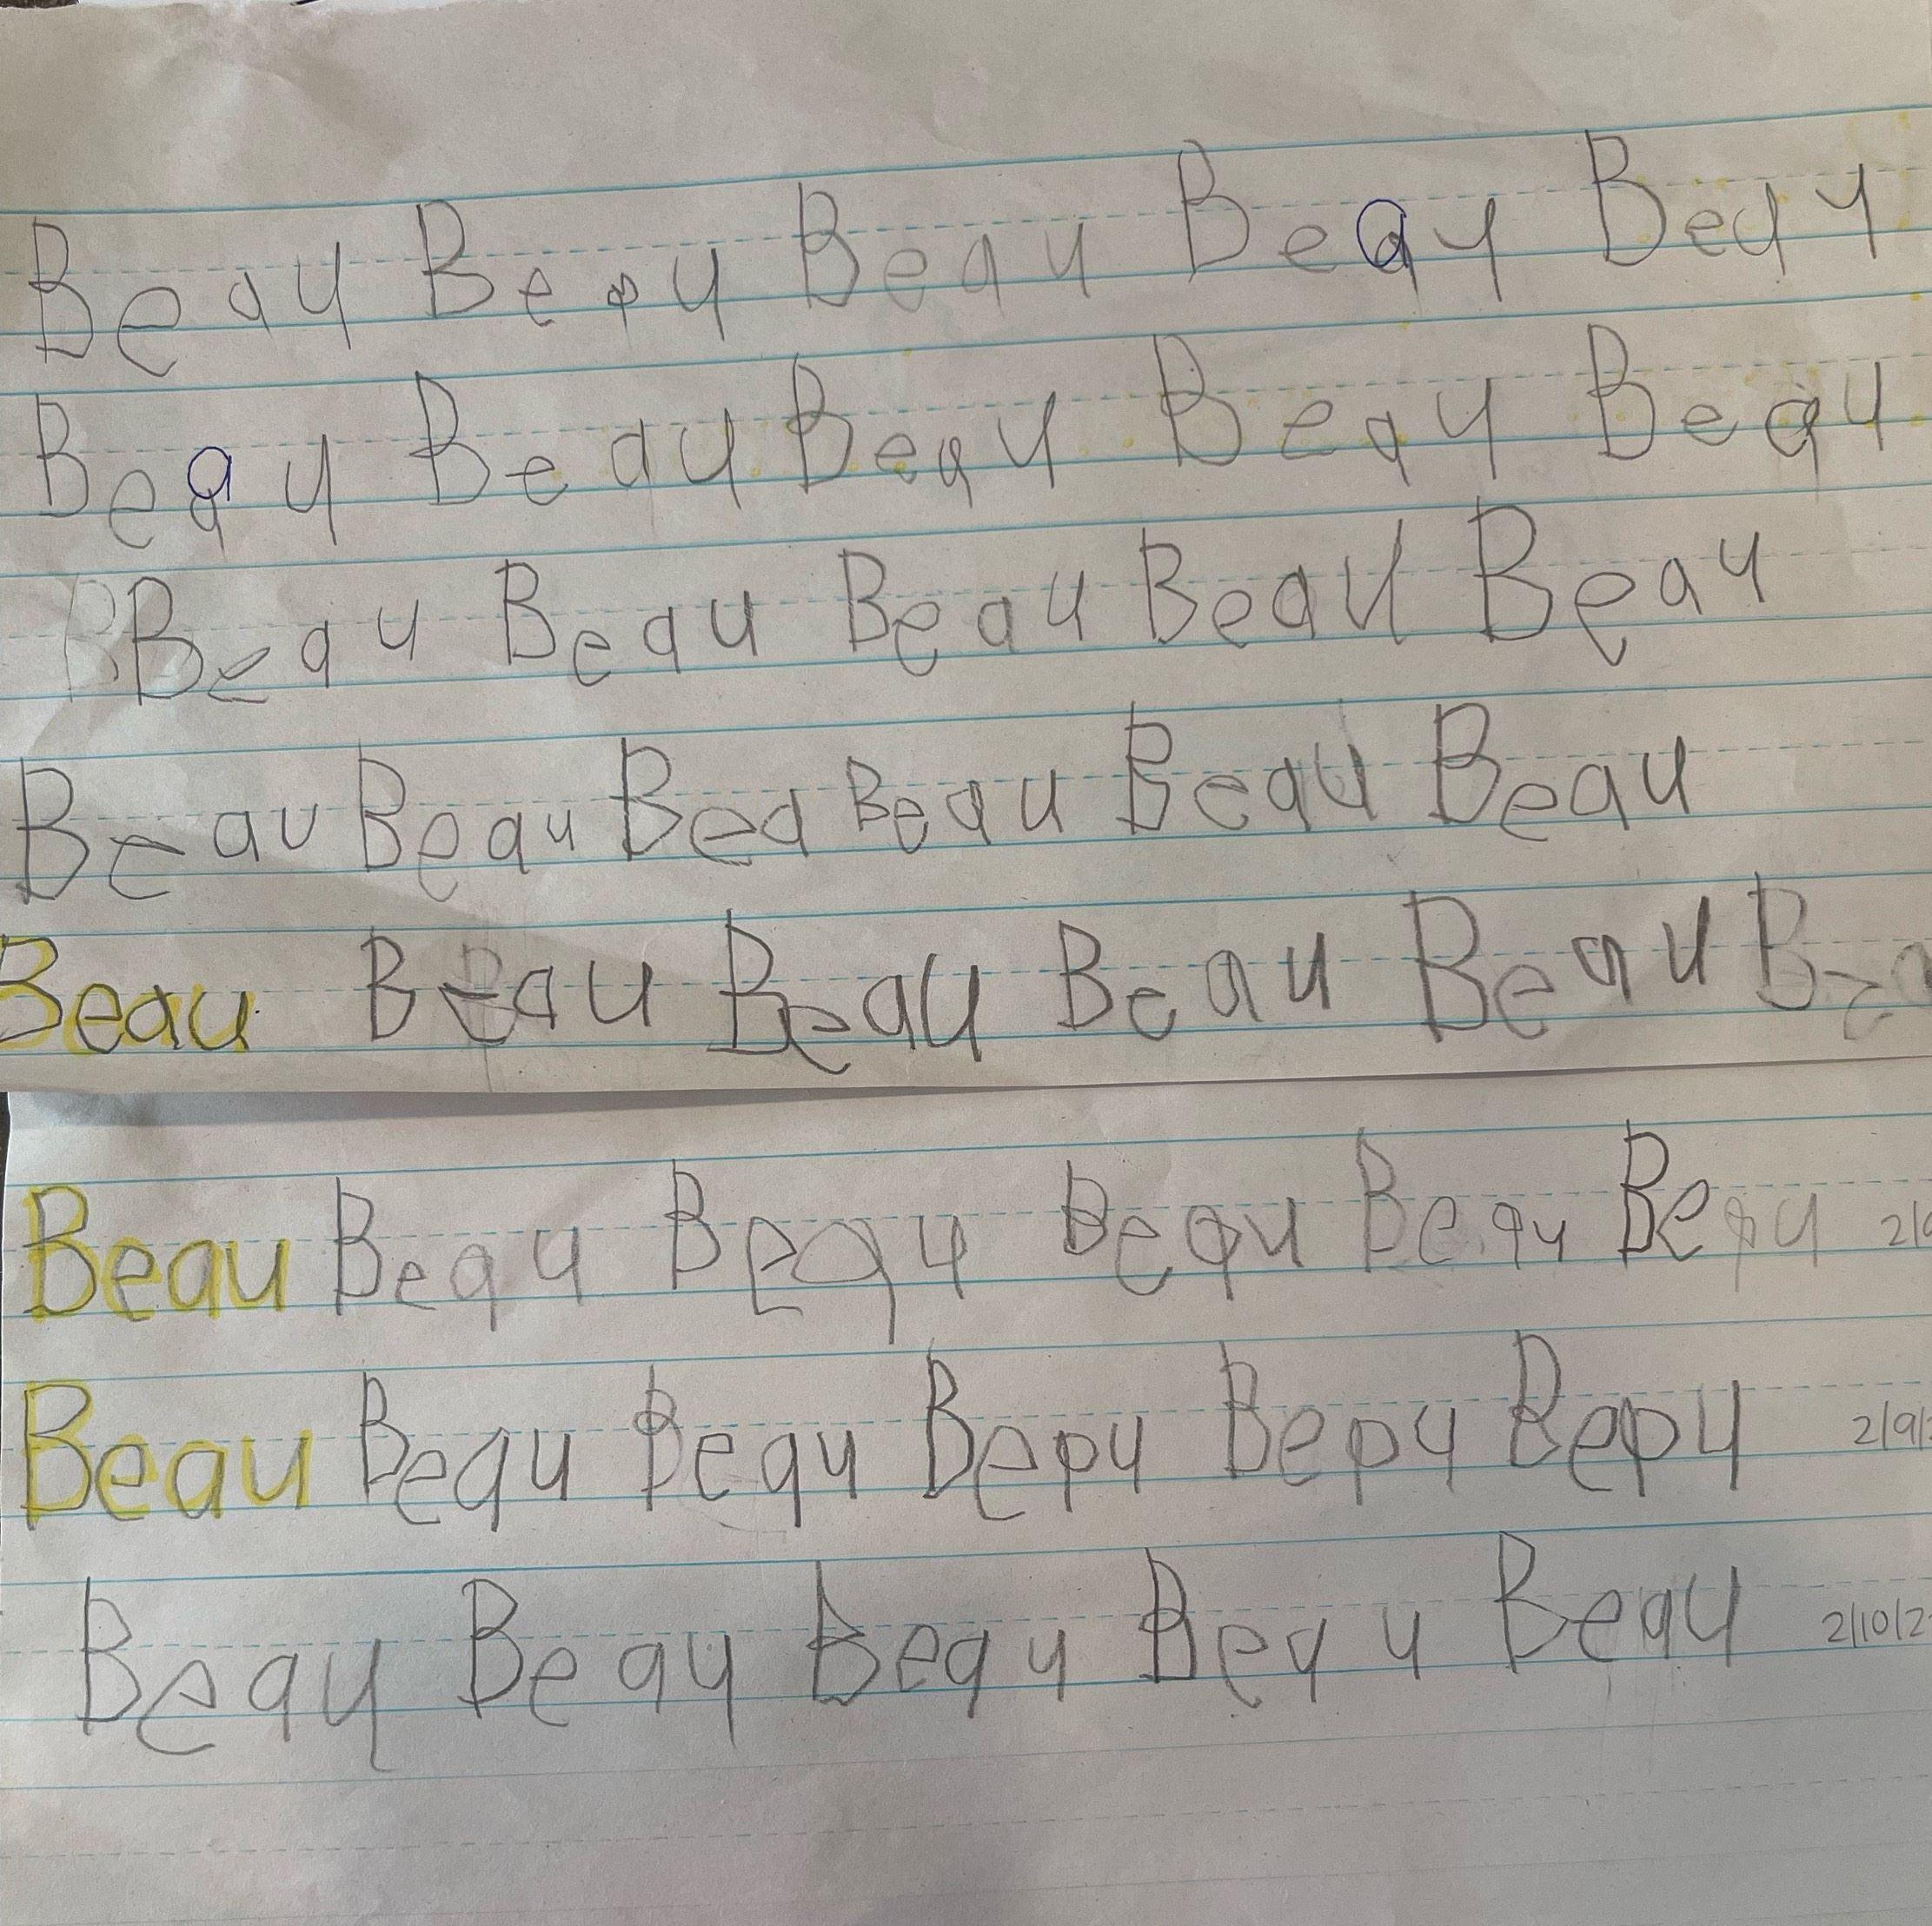 Beau Beau Beau Beau Beau
Beau Beau Beau Beau Beau
B Beau Beau Beau Beau Beau
Beau Beau Bea Beau Beau Beau
Beau Beau Beau Beau Beau Bea
Beau Beau Beau Beau Beau Beau
Beau Beau Beau Bepu Bepu Bepu 2/9/2
Beau Beau Beau Beau Beau 2/10/2